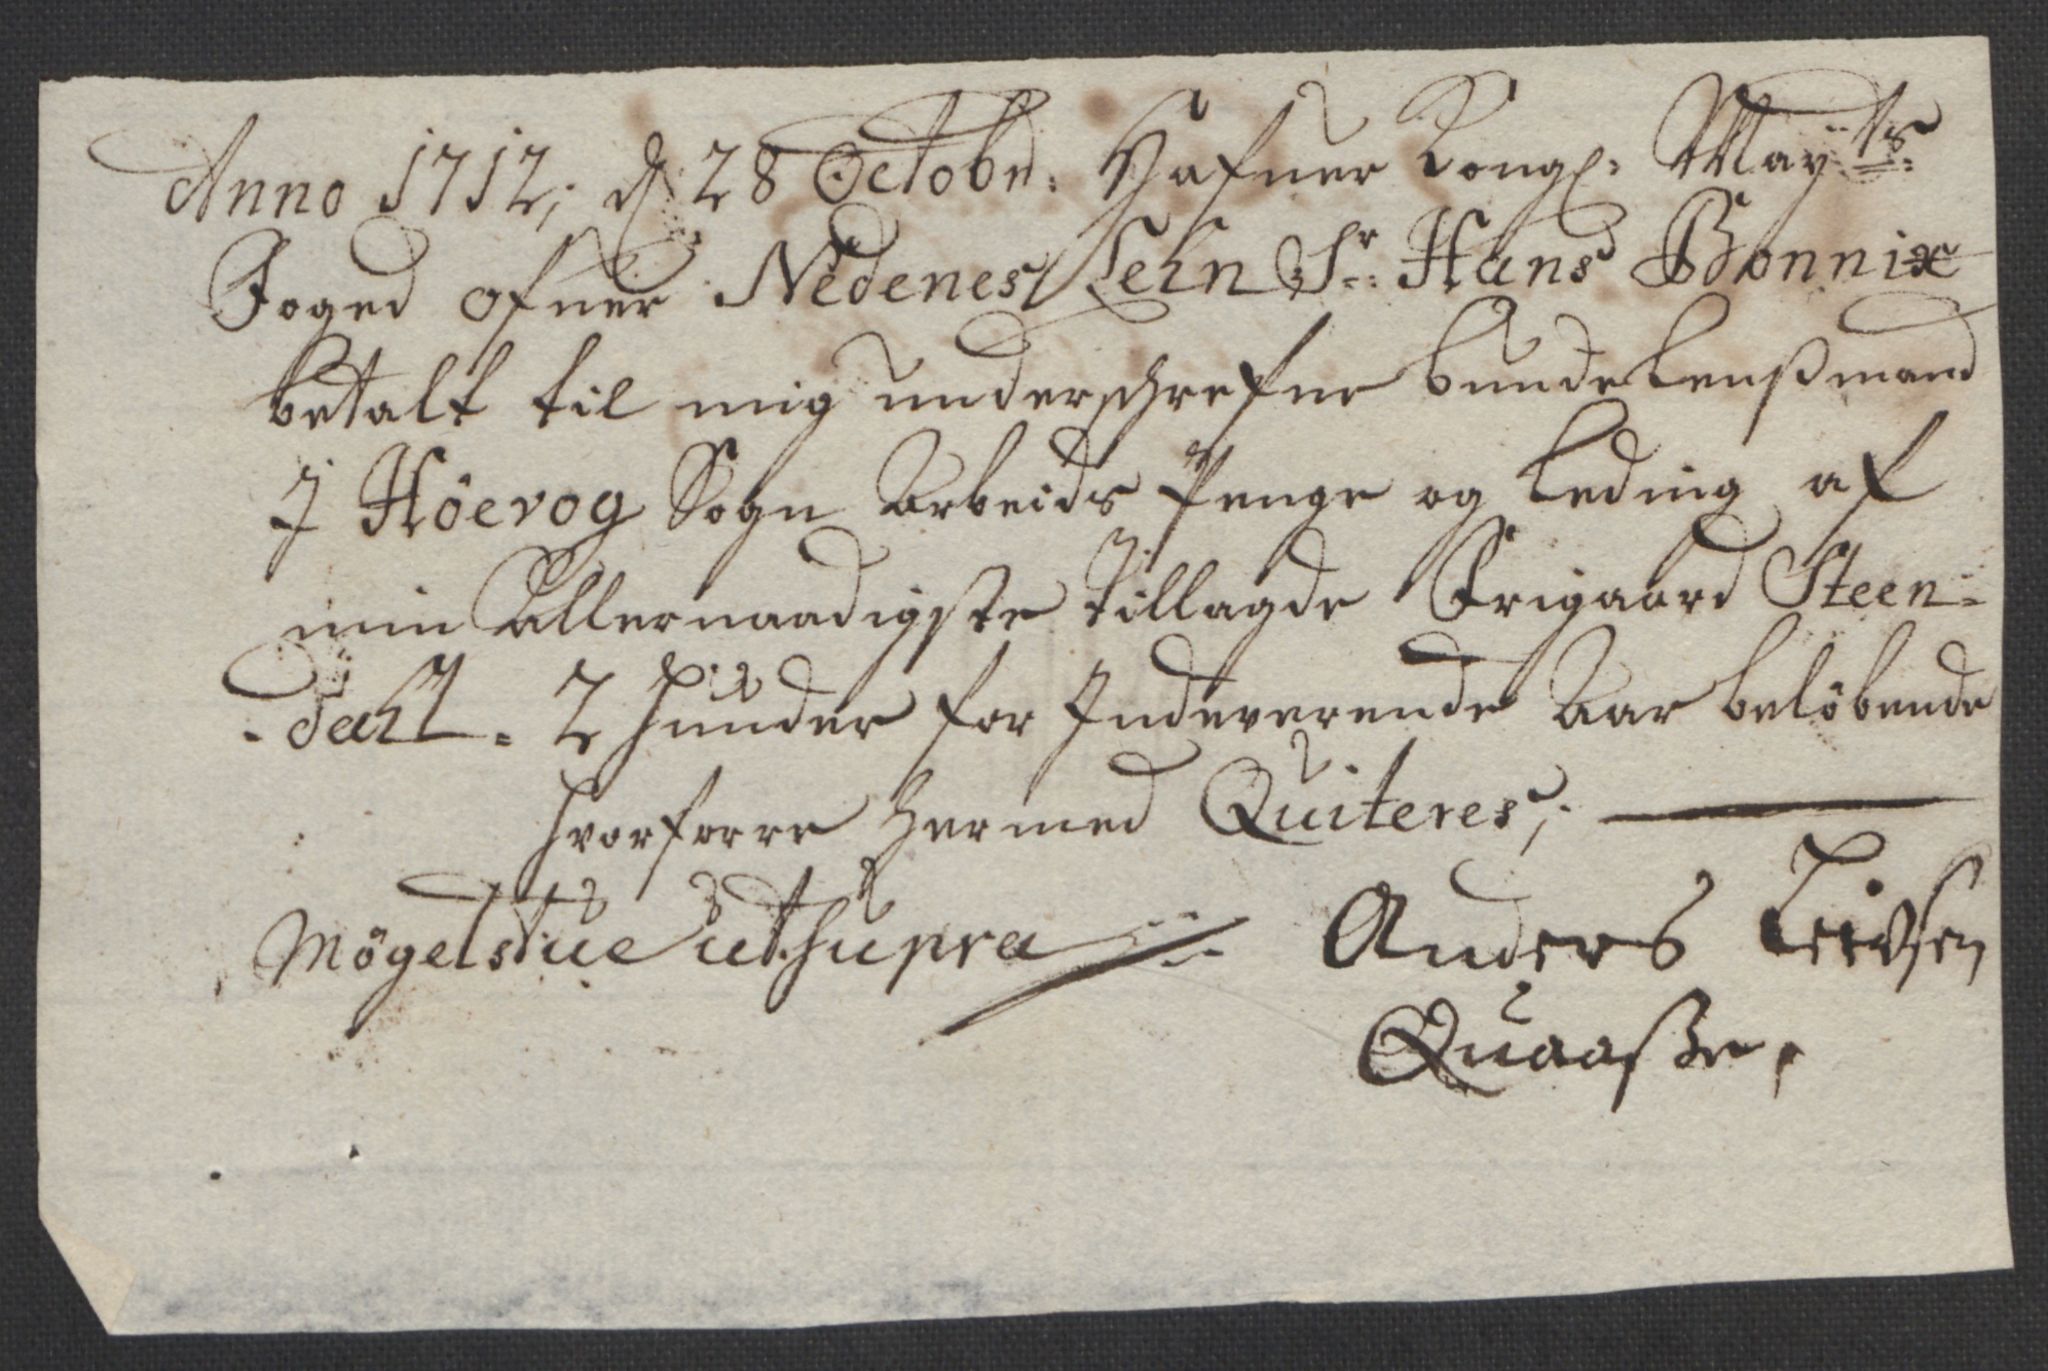 Anno 1712, d: 28 Octobr: Hafuer Kongl: Mayts:
Foged ofuer Nedenes Lehn Sr: Hans Bonnix
betalt til mig underschrefne bunde Lenßmand
J Höevog Sogn Arbeids Penge og Leding af
min Allernaadigste tillagde Frigaard Steen-
dahl. 2 Hunder for Indeverende Aar belöbende
hvorforre hermed Quiteres,
Mögelstue ut supra Anders Leivsen
Quaaße,